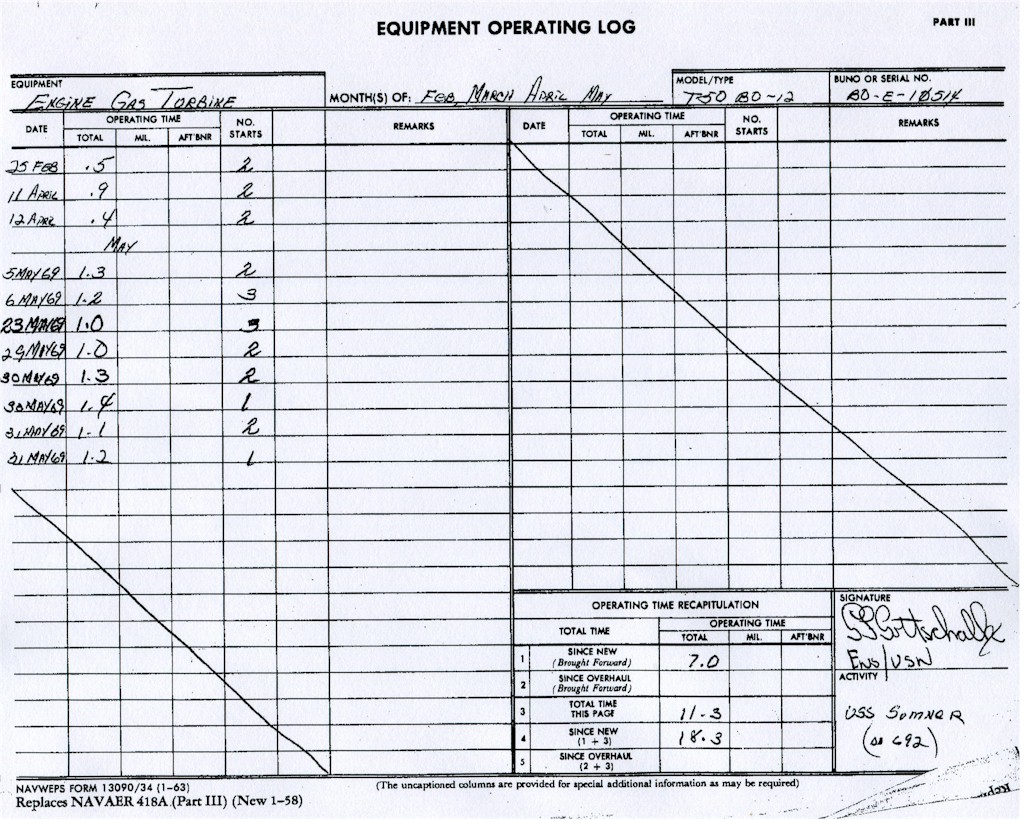 EQUIPMENT OPERATING LOG
PART III
EQUIPMENT
ENGINE GAS TURBINE
MONTH(S) OF: FEB, MARCH APRIL MAY
MODEL/TYPE
T-50 BO-12
BUNO OR SERIAL NO.
BO-E-10514
DATE
OPERATING TIME
TOTAL MIL. AFT'BNR
NO. STARTS
REMARKS
DATE
OPERATING TIME
TOTAL MIL. AFT'BNR
NO. STARTS
REMARKS
25 FEB .5 2
11 APRIL .9 2
12 APRIL .4 2
MAY
5 MAY 69 1.3 2
6 MAY 69 1.2 3
23 MAY 69 1.0 3
29 MAY 69 1.0 2
30 MAY 69 1.3 2
30 MAY 69 1.4 1
31 MAY 69 1.1 2
31 MAY 69 1.2 1
OPERATING TIME RECAPITULATION
TOTAL TIME
OPERATING TIME
TOTAL MIL. AFT'BNR
1 SINCE NEW (Brought Forward) 7.0
2 SINCE OVERHAUL (Brought Forward)
3 TOTAL TIME THIS PAGE 11.3
4 SINCE NEW (1 + 3) 18.3
5 SINCE OVERHAUL (2 + 3)
SIGNATURE
Gottschalk
ENS/USN
ACTIVITY
USS SUMNER
(DD 692)
NAVWEPS FORM 13090/34 (1-63)
Replaces NAVAER 418A (Part III) (New 1-58)
(The uncaptioned columns are provided for special additional information as may be required)